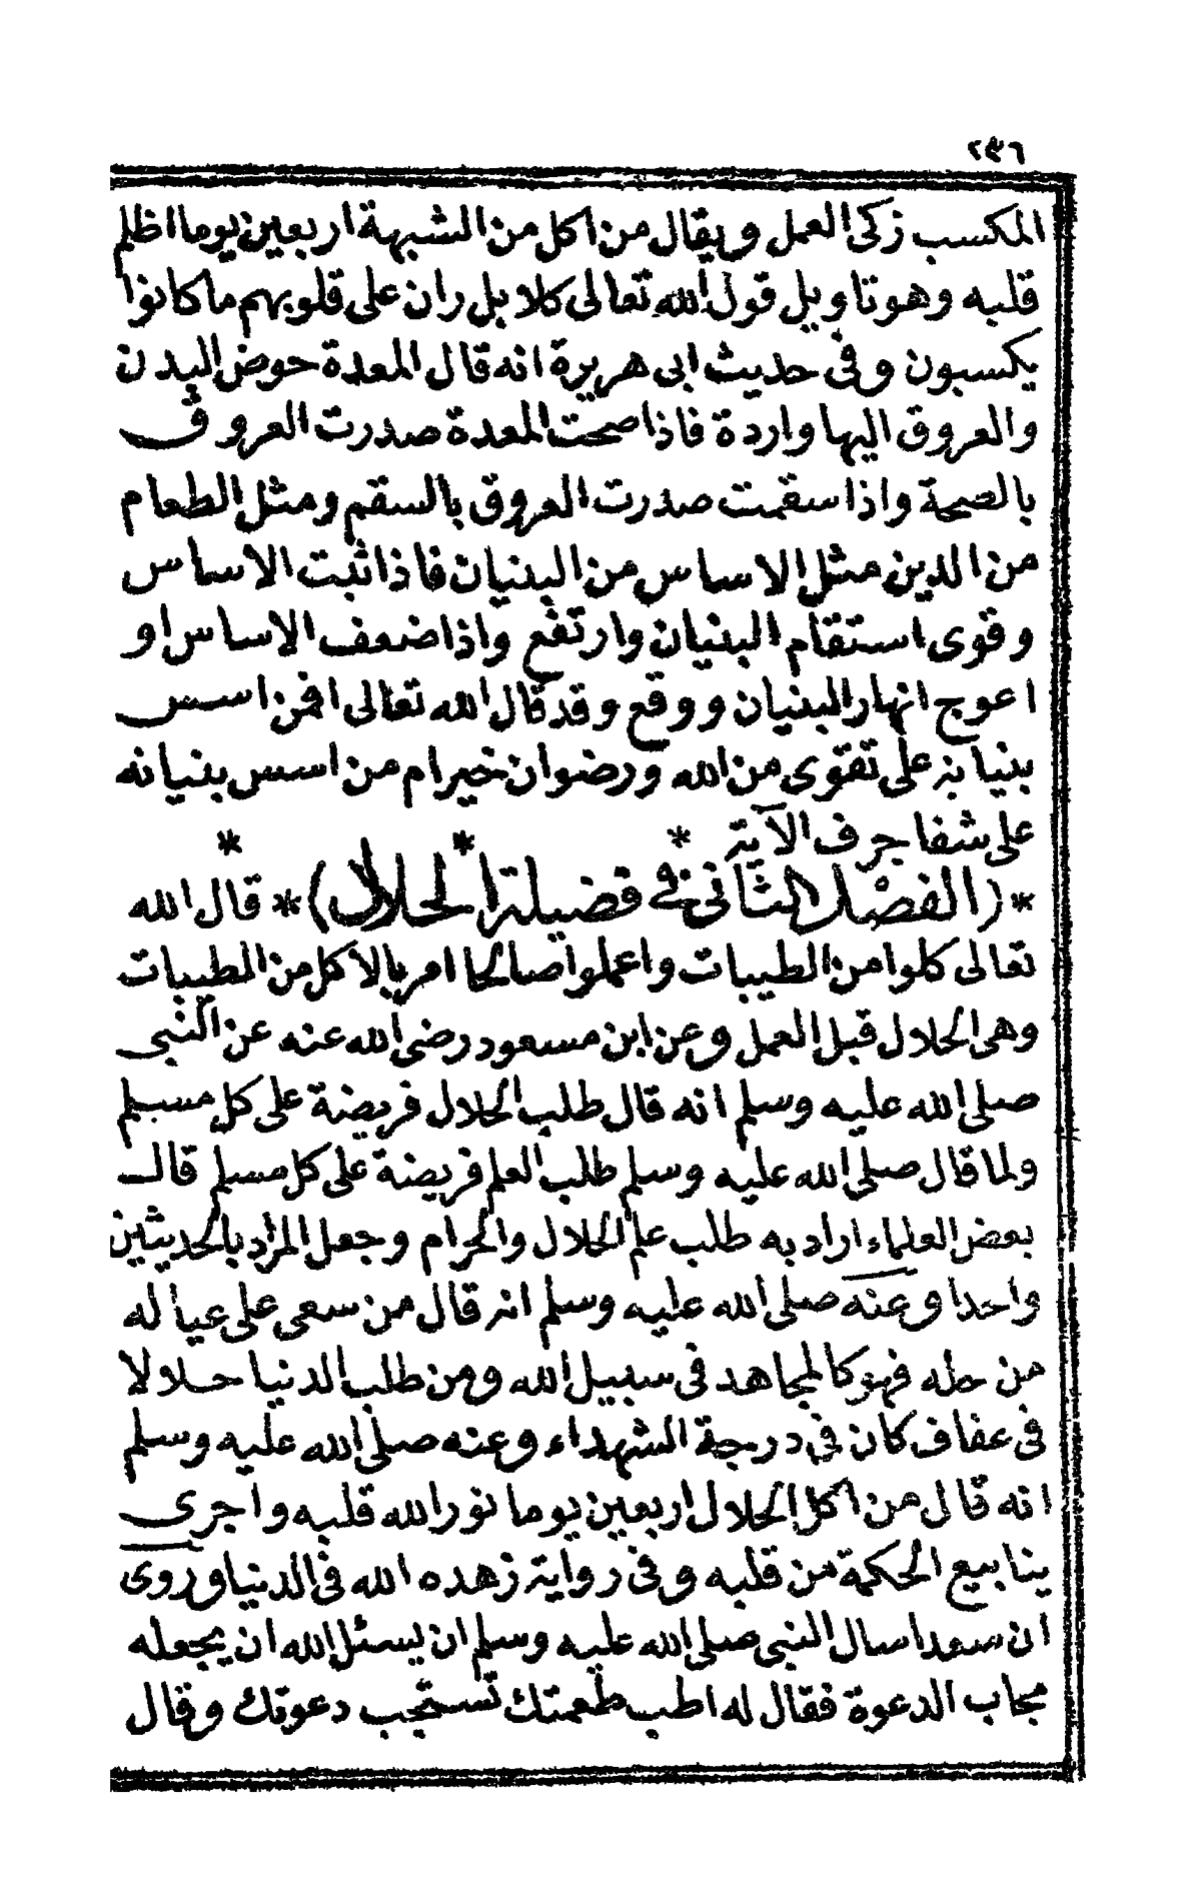 ٢٤٦
المكسب زكى العمل ويقال من اكل من الشبهة اربعين يوما اظلم
قلبه وهو تاويل قول الله تعالى كلا بل ران على قلوبهم ما كانوا
يكسبون وفى حديث ابى هريرة انه قال المعدة حوض البدن
والعروق اليها واردة فاذا صحت المعدة صدرت العروق
بالصحة واذا سقمت صدرت العروق بالسقم ومثل الطعام
من الدين مثل الاساس من البنيان فاذا ثبت الاساس
وقوى استقام البنيان وارتفع واذا ضعف الاساس او
اعوج انهار البنيان ووقع وقد قال الله تعالى افمن اسس
بنيانه على تقوى من الله ورضوان خير ام من اسس بنيانه
على شفا جرف الآية * * *
* (الفصل الثانى فى فضيلة الحلال) * قال الله
تعالى كلوا من الطيبات واعملوا صالحا امر بالاكل من الطيبات
وهى الحلال قبل العمل وعن ابن مسعود رضى الله عنه عن النبى
صلى الله عليه وسلم انه قال طلب الحلال فريضة على كل مسلم
ولما قال صلى الله عليه وسلم طلب العلم فريضة على كل مسلم قال
بعض العلماء اراد به طلب علم الحلال والحرام وجعل المراد بالحديثين
واحدا وعنه صلى الله عليه وسلم انه قال من سعى على عياله
من حله فهو كالمجاهد فى سبيل الله ومن طلب الدنيا حلالا
فى عفاف كان فى درجة الشهداء وعنه صلى الله عليه وسلم
انه قال من اكل الحلال اربعين يوما نور الله قلبه واجرى
ينابيع الحكمة من قلبه وفى رواية زهده الله فى الدنيا وروى
ان سعدا سال النبى صلى الله عليه وسلم ان يسئل الله ان يجعله
مجاب الدعوة فقال له اطب طعمتك تستجب دعوتك وقال